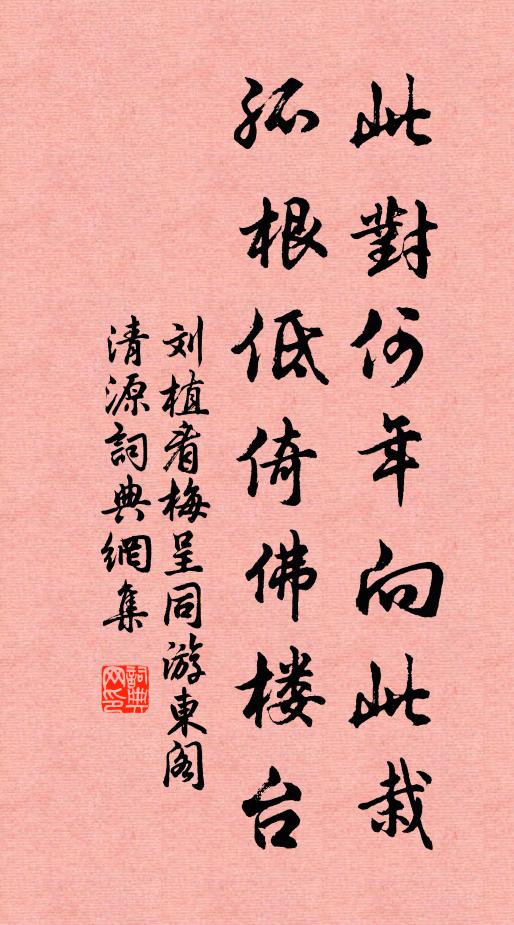 此對何年向此栽
孤根低倚佛楼台
刘植看梅呈同游東阁
清源詞典網集
詞典网印